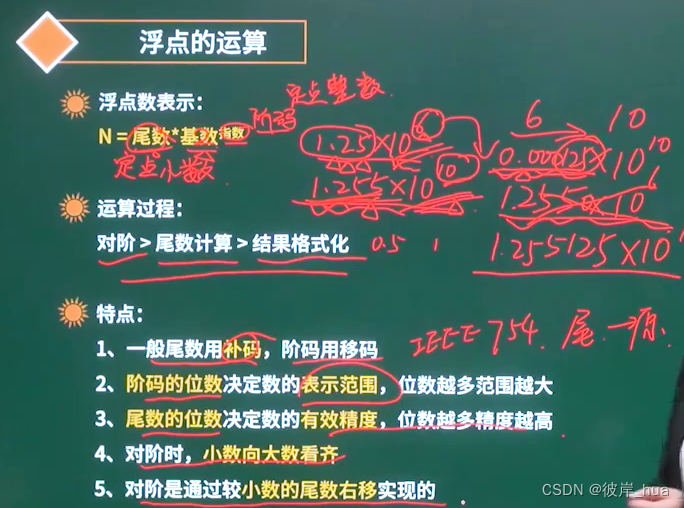 浮点的运算
浮点数表示：
N = 尾数*基数指数
阶码
定点整数
定点小数
1.25×10
1.255×10
10
6
10
运算过程：
对阶 > 尾数计算 > 结果格式化
0.5
1
1.255125×10
特点：
1、一般尾数用补码，阶码用移码
IEEE 754. 尾一源.
2、阶码的位数决定数的表示范围，位数越多范围越大
3、尾数的位数决定数的有效精度，位数越多精度越高
4、对阶时，小数向大数看齐
5、对阶是通过较小数的尾数右移实现的
CSDN @彼岸_hua